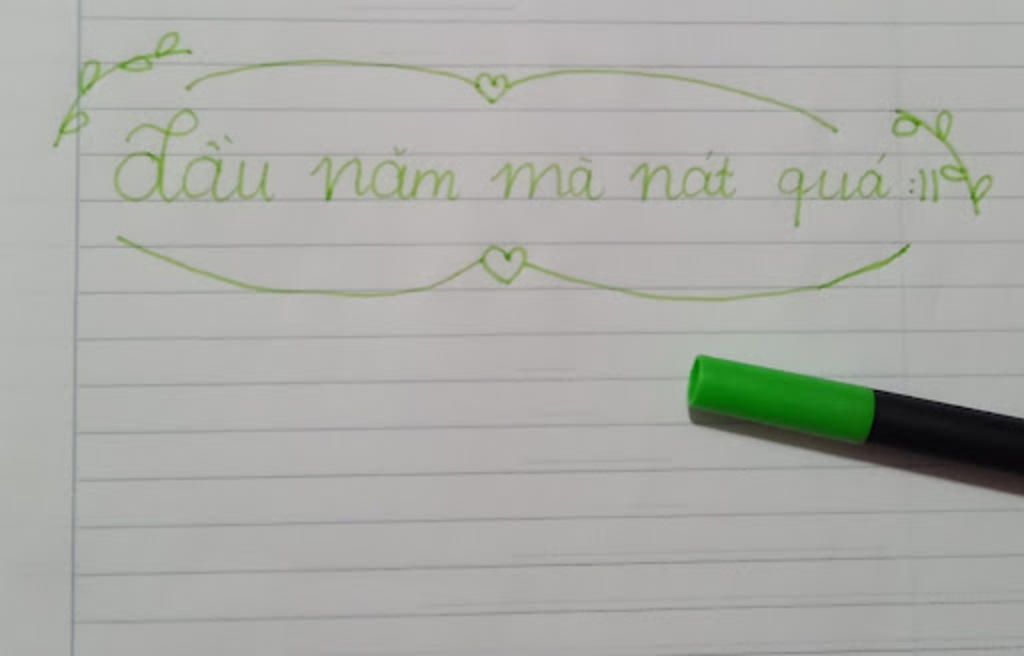 Đầu năm mà nát quá :))